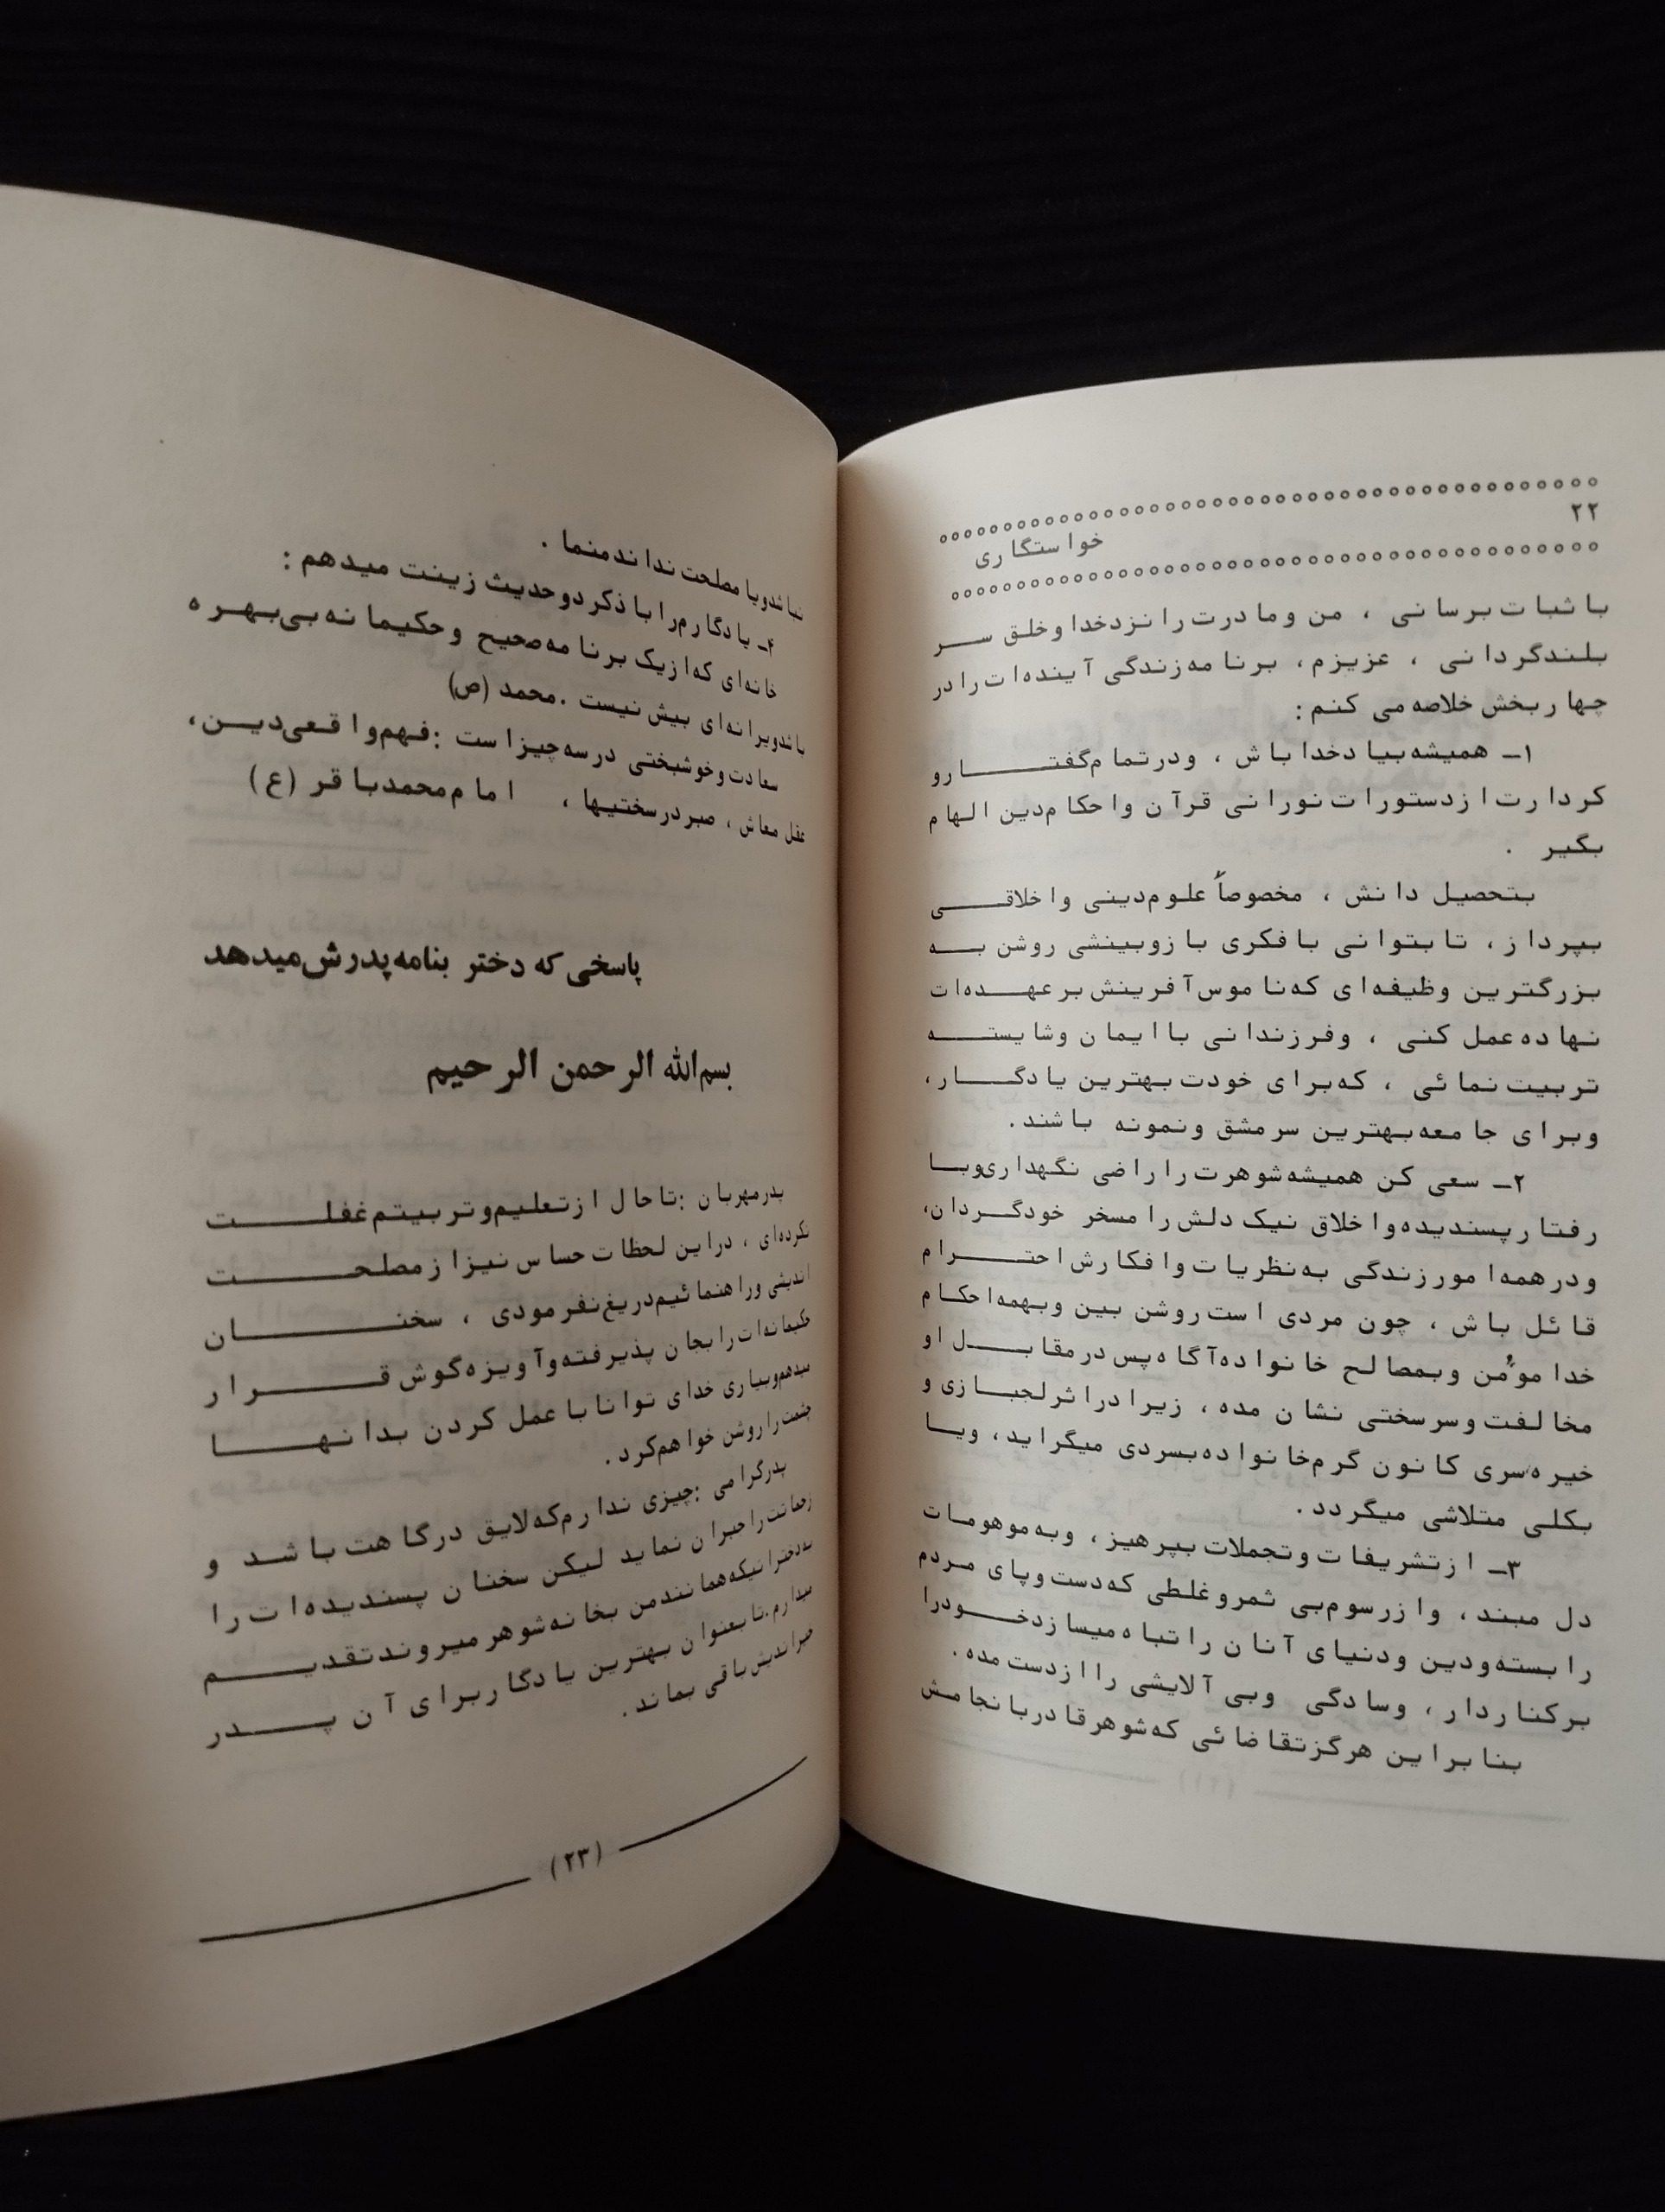 ۲۲
خواستگاری
باثبات برسانی ، من ومادرت را نزدخدا وخلق سر
بلندگردانی ، عزیزم، برنامه‌زندگی آینده‌ات‌را در
چهار بخش خلاصه می کنم :
۱ـ همیشه بیاد خدا باش ، ودرتمام گفتار و
کردارت از دستورات نورانی قرآن واحکام دین الهام
بگیر .
بتحصیل دانش ، مخصوصاً علوم دینی واخلاقی
بپرداز، تا بتوانی با فکری باز وبینشی روشن به
بزرگترین وظیفه‌ای که ناموس آفرینش برعهده‌ات
نهاده عمل کنی ، وفرزندانی با ایمان وشایسته
تربیت نمائی ، که برای خودت بهترین یادگار،
وبرای جامعه بهترین سرمشق ونمونه باشند.
۲ـ سعی کن همیشه شوهرت را راضی نگهداری وبا
رفتار پسندیده واخلاق نیک دلش را مسخر خودگردان،
ودرهمه امور زندگی به نظریات وافکارش احترام
قائل باش ، چون مردی است روشن بین وبهمه احکام
خدا مؤمن وبمصالح خانواده آگاه پس درمقابل او
مخالفت وسرسختی نشان مده ، زیرا دراثر لجبازی و
خیره سری کانون گرم خانواده بسردی میگراید، ویا
بکلی متلاشی میگردد.
۳ـ ازتشریفات وتجملات بپرهیز، وبه موهومات
دل مبند، واز رسوم بی ثمر وغلطی که دست وپای مردم
را بسته ودین ودنیای آنان را تباه میسازد خودرا
برکنار دار، وسادگی وبی آلایشی را ازدست مده .
بنابراین هرگز تقاضائی که شوهر قادر بانجامش
نباشد ویا مصلحت نداند منما .
۴ـ یادگارم را با ذکر دوحدیث زینت میدهم :
خانه‌ای که ازیک برنامه صحیح وحکیمانه بی‌بهره
باشد ویرانه‌ای بیش نیست .محمد (ص)
سعادت وخوشبختی درسه چیز است :فهم واقعی دین،
عقل معاش ، صبر درسختیها ، امام محمدباقر (ع)
پاسخی که دختر بنامه پدرش میدهد
بسم الله الرحمن الرحیم
پدرمهربان :تاحال ازتعلیم وتربیتم غفلت
نکرده‌ای ، دراین لحظات حساس نیز ازمصلحت
اندیشی وراهنمائیم دریغ نفرمودی ، سخنان
حکیمانه‌ات را بجان پذیرفته وآویزه گوش قرار
میدهم وبیاری خدای توانا با عمل کردن بدانها
چشمت را روشن خواهم کرد.
پدرگرامی :چیزی ندارم که لایق درگاهت باشد و
زحماتت را جبران نماید لیکن سخنان پسندیده‌ات را
به دخترانیکه همانند من بخانه شوهر میروند تقدیم
میدارم .تا بعنوان بهترین یادگار برای آن پدر
خیراندیش باقی بماند.
(۲۳)